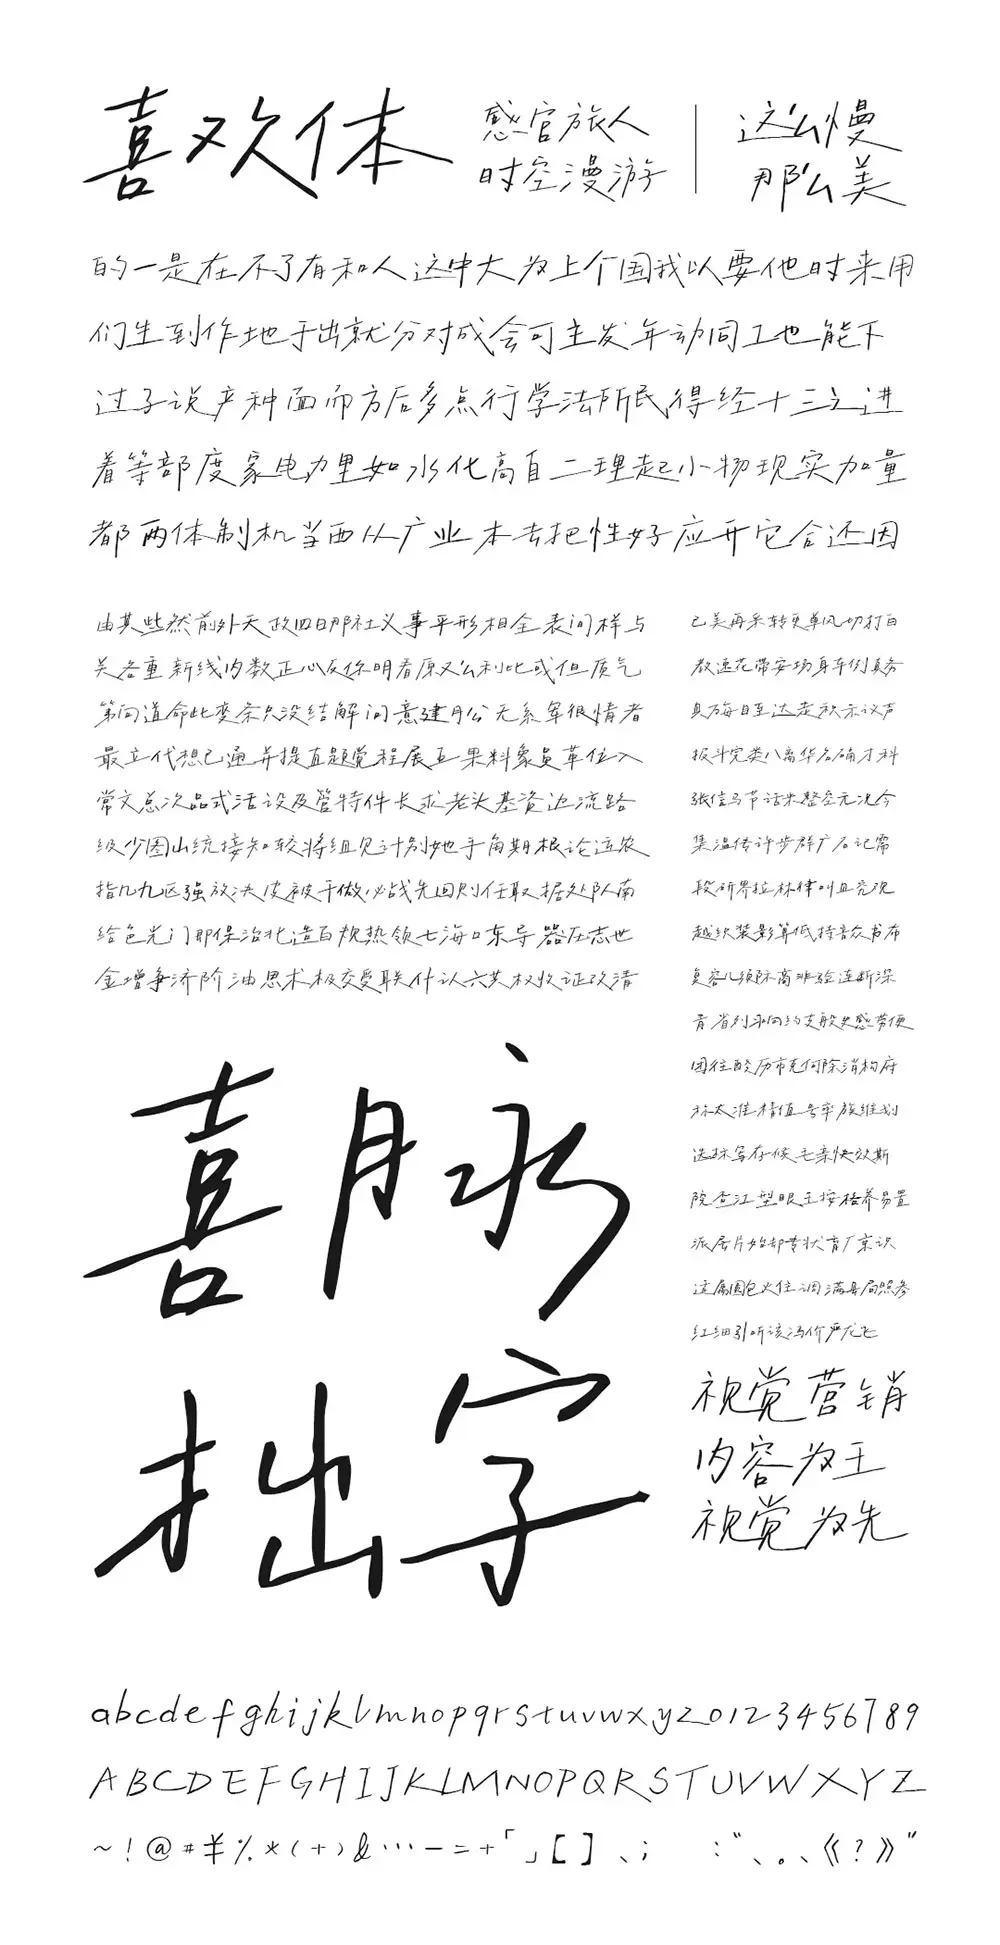 喜欢体
感官旅人
时空漫游
这么慢
那么美
的一是在不了有和人这中大为上个国我以要他时来用
们生到作地于出就分对成会可主发年动同工也能下
过子说产种面而方后多点行学法所民得经十三之进
着等部度家电力里如水化高自二理起小物现实加量
都两体制机当西从广业本去把性好应开它合还因
由其些然前外天政四日那社义事平形相全表间样与
关各重新线内数正心反你明看原又么利比或但质气
第向道命此变条只没结解问意建月公无系军很情者
最立代想已通并提直题党程展五果料象员革位入
常文总次品式活设及管特件长求老头基资边流路
级少图山统接知较将组见计别她手角期根论运农
指几九区强放决皮被干做必战先回则任取据处队南
给色光门即保治北造百规热领七海口东导器压志世
金增争济阶油思术极交受联什认六共权收证改清
己美再采转更单风切打白
教速花带安场身车例真务
具万每目至达走积示议声
报斗完类八离华名确才科
张信马节话米整空元况今
集温传许步群广石记需
段研界拉林律叫且究观
越织装影算低持音众书布
复容儿须际商非验连断深
青省列求向约支般史感劳便
团往酸历市克何除消构府
称太准精值号率族维划
选标写存候毛亲快效斯
院查江型眼王按格养易置
派层片始却专状育厂京识
适属圆包火住调满县局照参
红细引听该冯价严龙飞
喜脉
拙字
视觉营销
内容为王
视觉为先
abcdefghijklmnopqrstuvwxyz0123456789
ABCDEFGHIJKLMNOPQRSTUVWXYZ
~!@#¥%*(+)&…—=+「」[]、; :“、。、《?》”